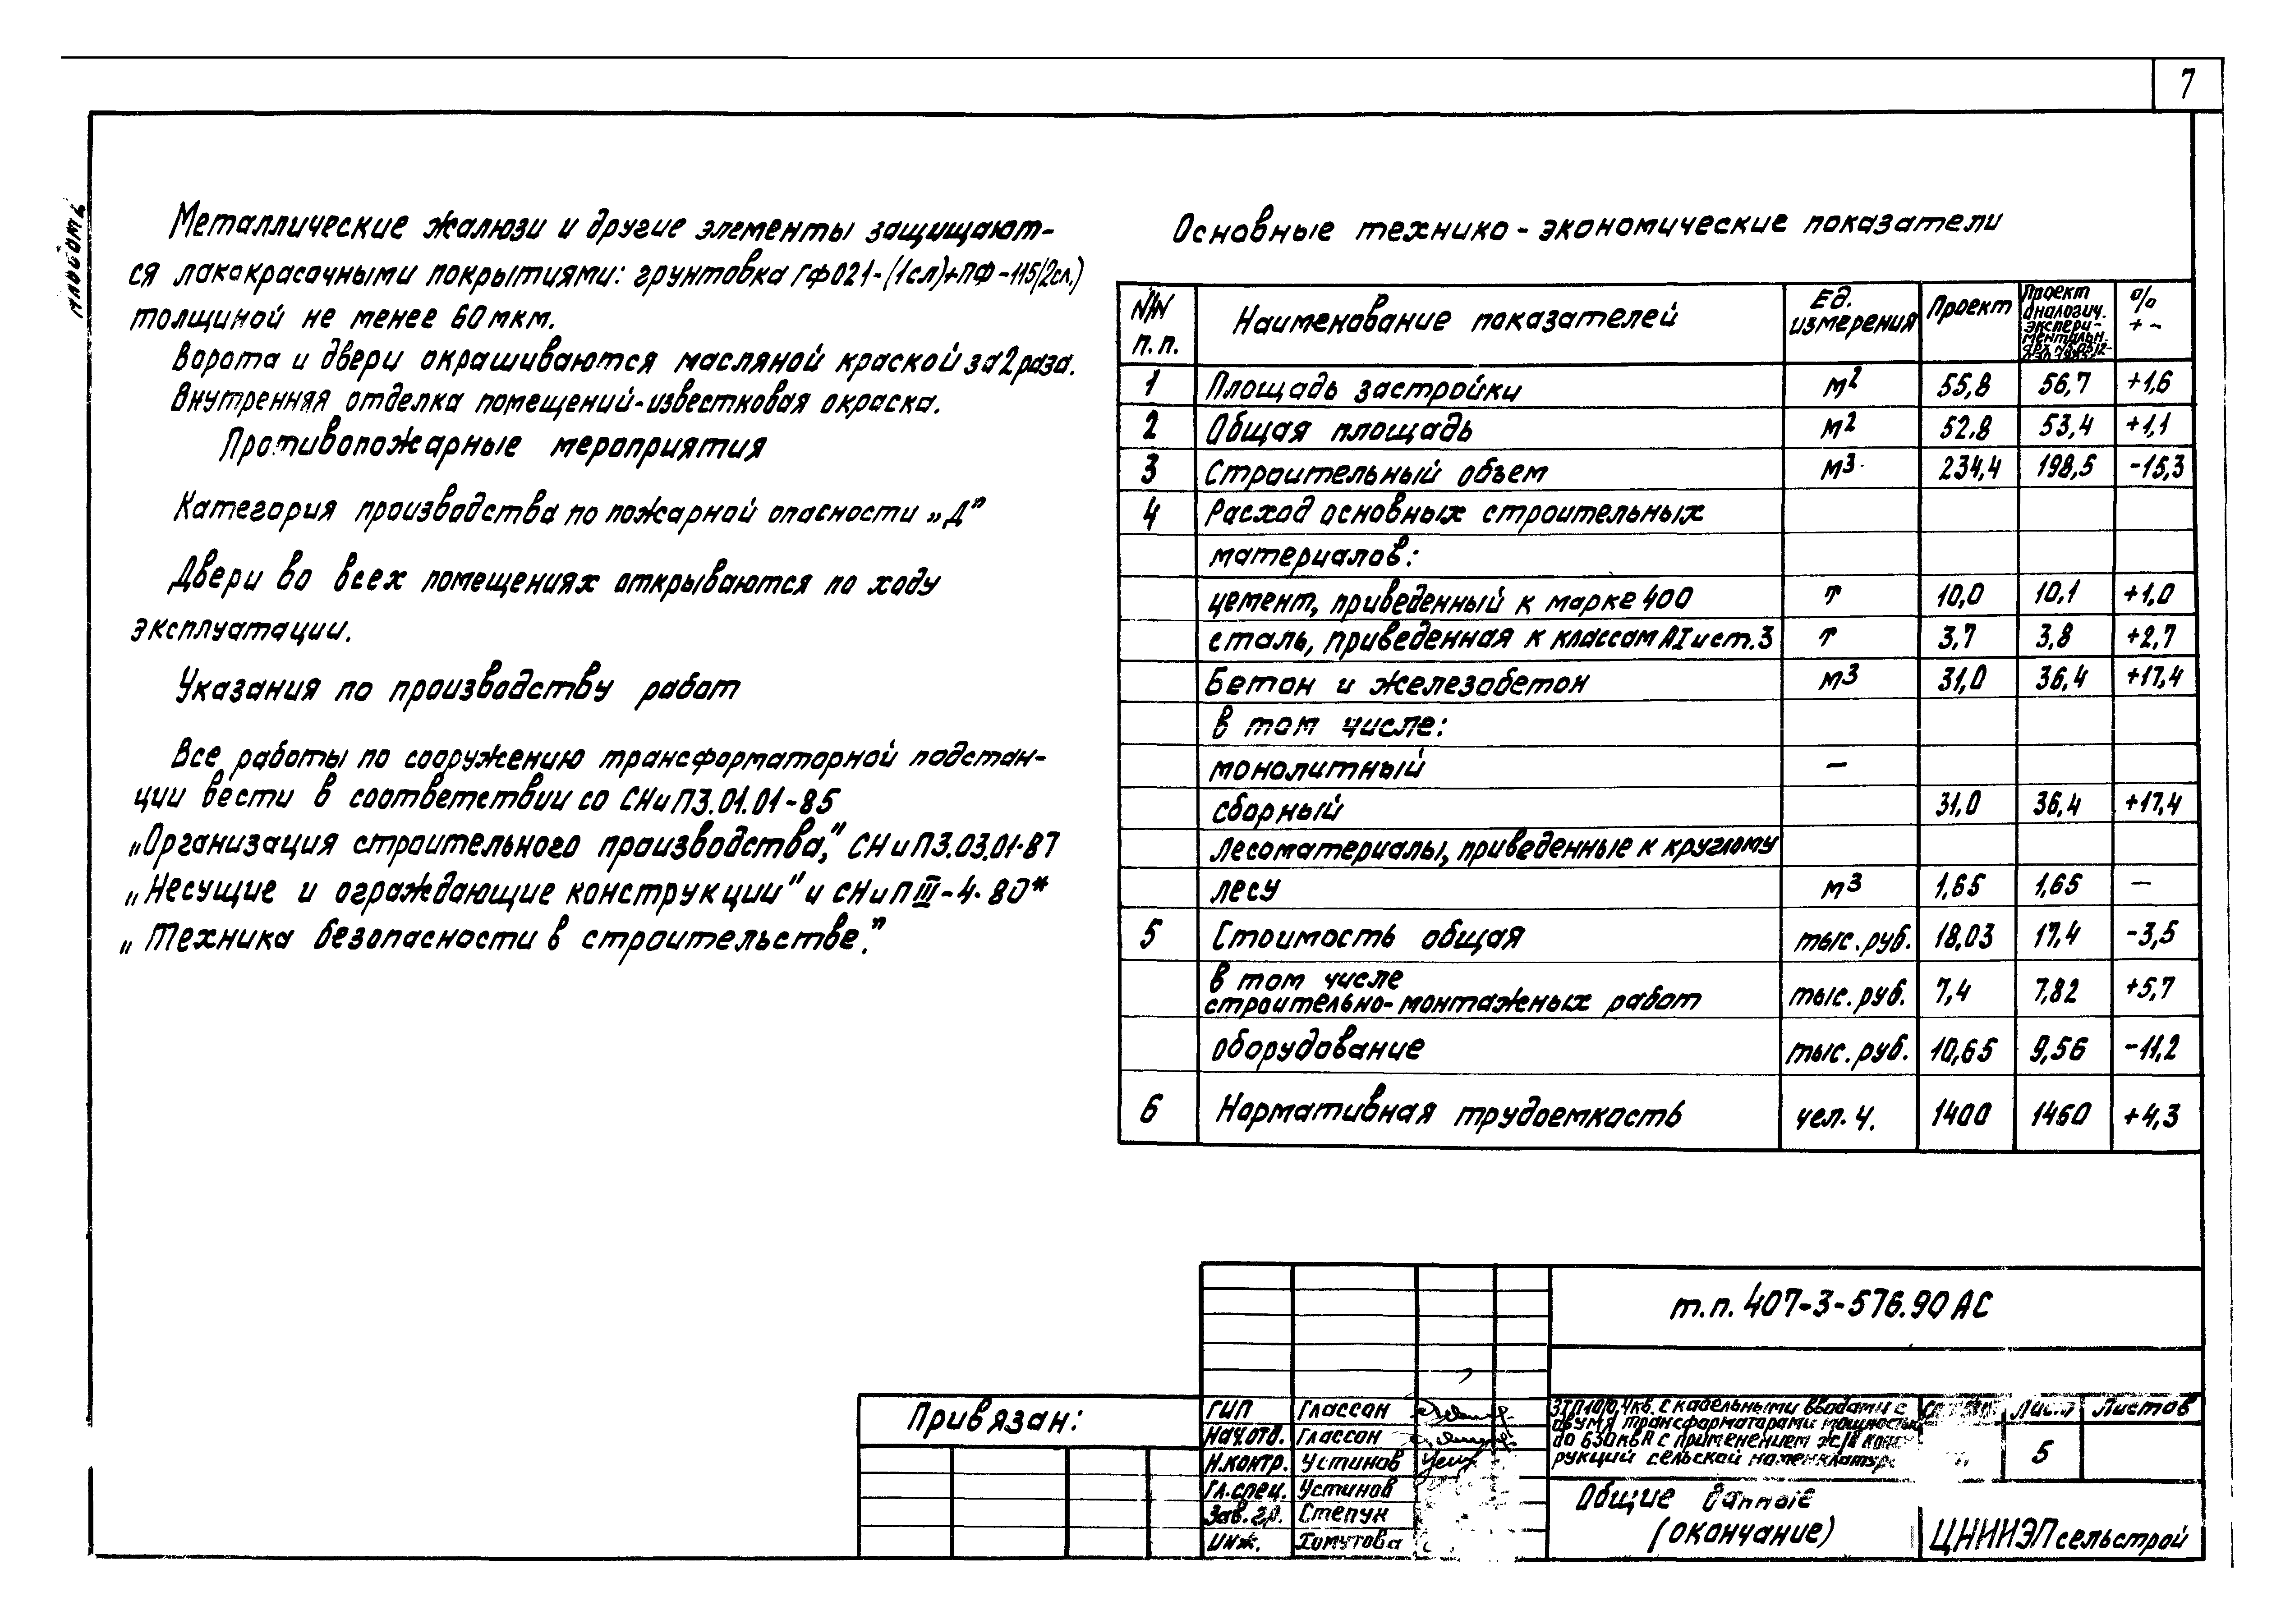 7
Металлические жалюзи и другие элементы защищают-
ся лакокрасочными покрытиями: грунтовка ГФ021-(1сл)+ПФ-115(2сл.)
толщиной не менее 60 мкм.
Ворота и двери окрашиваются масляной краской за 2 раза.
Внутренняя отделка помещений-известковая окраска.
Противопожарные мероприятия
Категория производства по пожарной опасности „Д"
Двери во всех помещениях открываются по ходу
эксплуатации.
Указания по производству работ
Все работы по сооружению трансформаторной подстан-
ции вести в соответствии со СНиП3.01.01-85
„Организация строительного производства," СНиП3.03.01-87
„Несущие и ограждающие конструкции" и СНиП III-4-80*
„Техника безопасности в строительстве."
Основные технико-экономические показатели
N/N п.п. Наименование показателей Ед. измерения Проект Проект аналогич. экспери-ментальн. % + -
1 Площадь застройки м2 55,8 56,7 +1,6
2 Общая площадь м2 52,8 53,4 +1,1
3 Строительный объем м3 234,4 198,5 -15,3
4 Расход основных строительных
материалов:
цемент, приведенный к марке 400 т 10,0 10,1 +1,0
сталь, приведенная к классам АI и ст.3 т 3,7 3,8 +2,7
Бетон и железобетон м3 31,0 36,4 +17,4
в том числе:
монолитный —
сборный 31,0 36,4 +17,4
лесоматериалы, приведенные к круглому
лесу м3 1,65 1,65 —
5 Стоимость общая тыс.руб. 18,03 17,4 -3,5
в том числе
строительно-монтажных работ тыс.руб. 7,4 7,82 +5,7
оборудование тыс.руб. 10,65 9,56 -11,2
6 Нормативная трудоемкость чел.ч. 1400 1460 +4,3
т.п. 407-3-576.90 АС
Привязан:
ГИП Глассон
Нач.отд. Глассон
Н.контр. Устинов
Гл.спец. Устинов
Зав.гр. Степук
Инж. Хомутова
ЗТП10/0,4кв. с кабельными вводами с
двумя трансформаторами мощностью
до 630 кВА с применением ж/б конст
рукций сельской номенклатуры
Лист Листов
5
Общие данные
(окончание)
ЦНИИЭПсельстрой